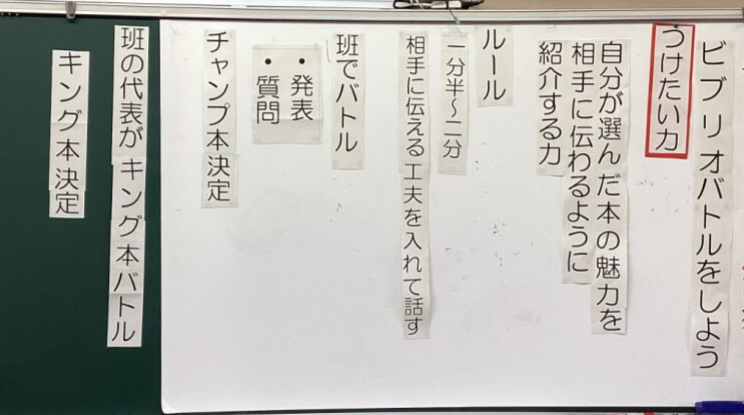 ビブリオバトルをしよう
うけたい力
自分が選んだ本の魅力を
相手に伝わるように
紹介する力
ルール
一分半~二分
相手に伝える工夫を入れて話す
班でバトル
・発表
・質問
チャンプ本決定
班の代表がキング本バトル
キング本決定